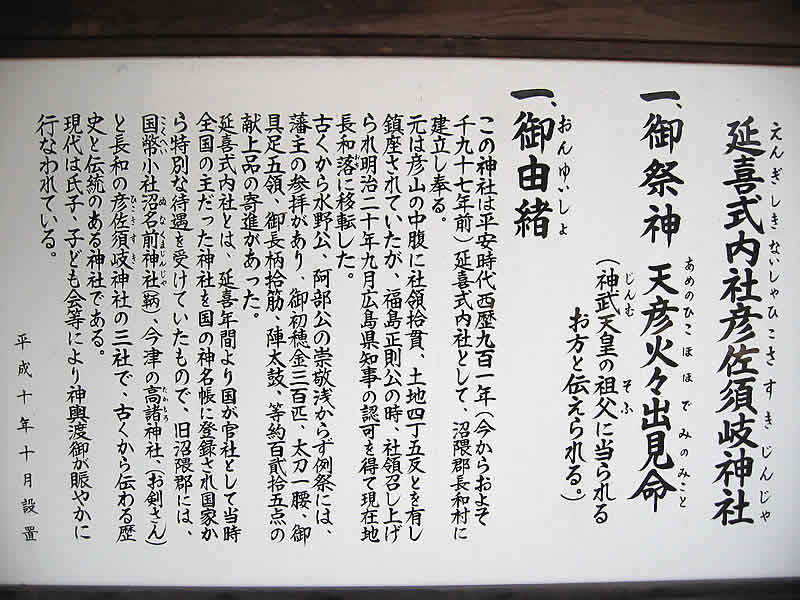 延喜式内社彦佐須岐神社
えんぎしきないしゃひこさすきじんじゃ
一、御祭神 天彦火々出見命
あめのひこほほでみのみこと
(神武天皇の祖父に当られる
じんむ そふ
お方と伝えられる。)
一、御由緒
おんゆいしょ
この神社は平安時代西歴九百一年(今からおよそ
千九十七年前)延喜式内社として、沼隈郡長和村に
建立し奉る。
元は彦山の中腹に社領拾貫、土地四丁五反とを有し
鎮座されていたが、福島正則公の時、社領召し上げ
られ明治二十年九月広島県知事の認可を得て現在地
長和落に移転した。
古くから水野公、阿部公の崇敬浅からず例祭には、
藩主の参拝があり、御初穂金三百匹、太刀一腰、御
具足五領、御長柄拾筋、陣太鼓、等約百貮拾五点の
献上品の寄進があった。
延喜式内社とは、延喜年間より国が官社として当時
全国の主だった神社を国の神名帳に登録され国家か
ら特別な待遇を受けていたもので、旧沼隈郡には、
国幣小社沼名前神社(鞆)、今津の高諸神社、(お剣さん)
こくへい ぬなくまじんじゃ たかもろ
と長和の彦佐須岐神社の三社で、古くから伝わる歴
ひこさすき
史と伝統のある神社である。
現代は氏子、子ども会等により神輿渡御が賑やかに
行なわれている。
平成十年十月設置